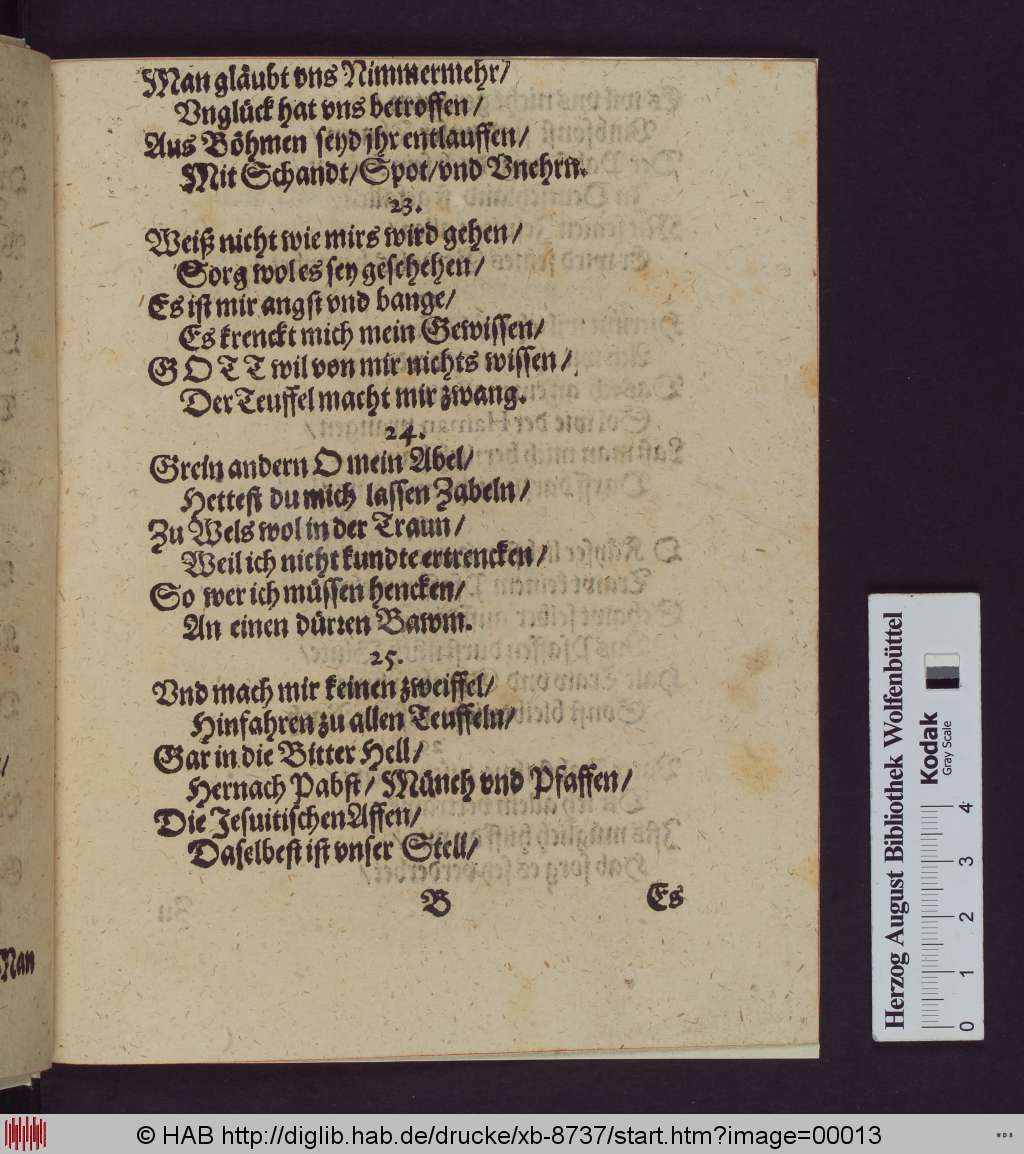 Man gläubt vns Nimmermehr/
Vnglück hat vns betroffen/
Aus Böhmen seyd jhr entlauffen/
Mit Schandt/Spot/vnd Vnehrn.
23.
Weiß nicht wie mirs wird gehen/
Sorg wol es sey geschehen/
Es ist mir angst vnd bange/
Es krenckt mich mein Gewissen/
GOTT wil von mir nichts wissen/
Der Teuffel macht mir zwang.
24.
Grein andern O mein Abel/
Hettest du mich lassen Zabeln/
Zu Wels wol in der Traun/
Weil ich nicht kundte ertrencken/
So wer ich müssen hencken/
An einen dürren Bawm.
25.
Vnd mach mir keinen zweiffel/
Hinfahren zu allen Teuffeln/
Gar in die Bitter Hell/
Hernach Pabst/ Münch vnd Pfaffen/
Die Jesuitischen Affen/
Daselbest ist vnser Stell/
B Es
Man
Herzog August Bibliothek Wolfenbüttel
Kodak
Gray Scale
0 1 2 3 4
© HAB http://diglib.hab.de/drucke/xb-8737/start.htm?image=00013